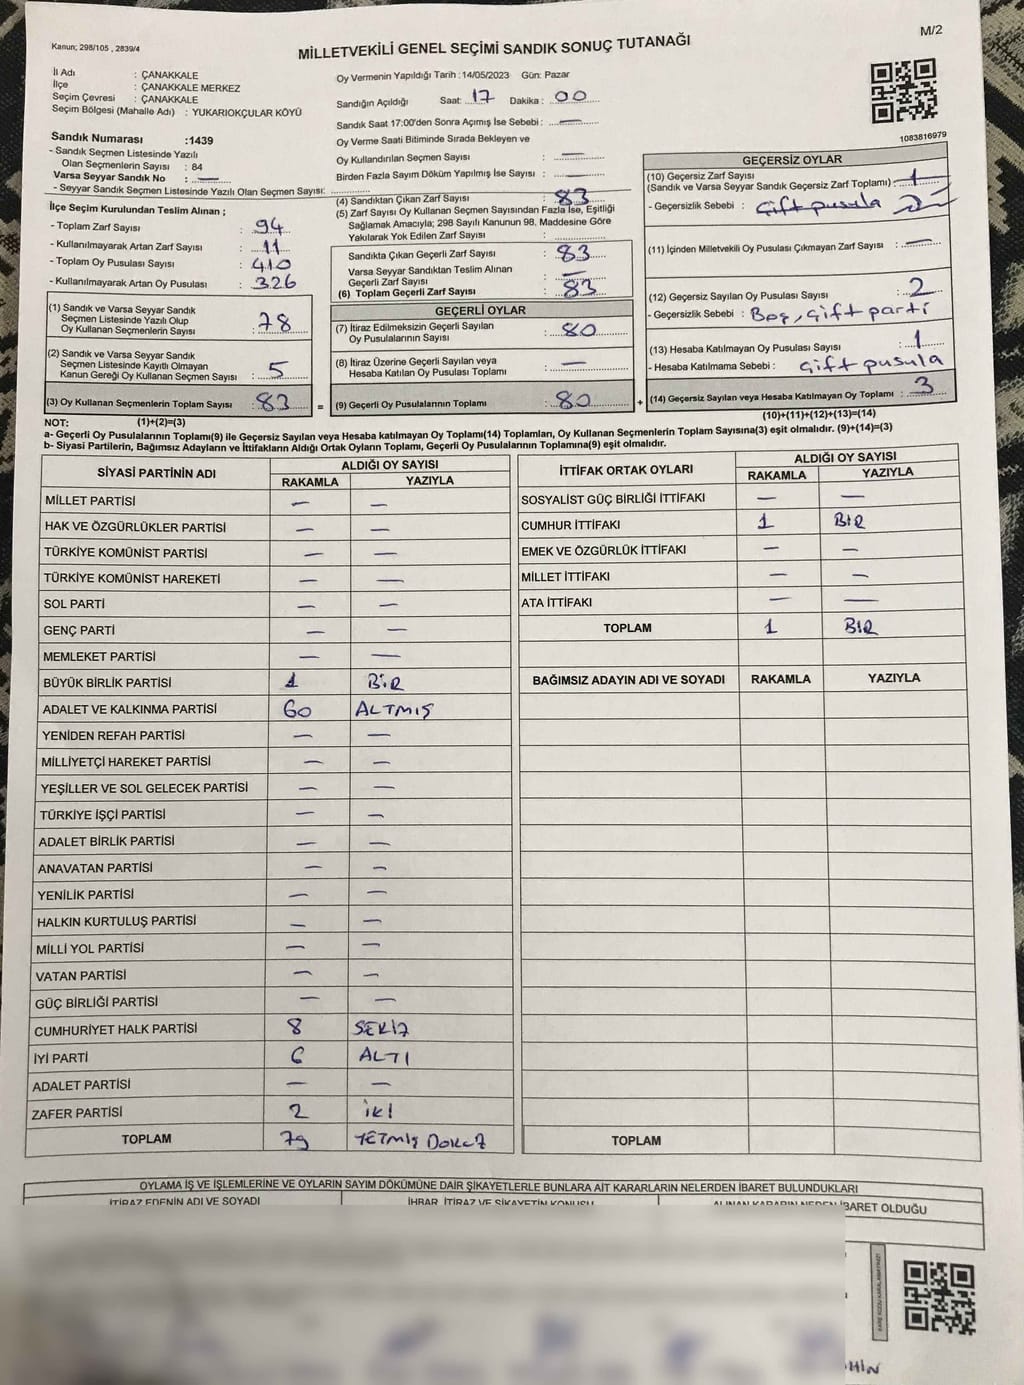 Kanun; 298/105 , 2839/4
MİLLETVEKİLİ GENEL SEÇİMİ SANDIK SONUÇ TUTANAĞI
M/2
İl Adı : ÇANAKKALE
İlçe : ÇANAKKALE MERKEZ
Seçim Çevresi : ÇANAKKALE
Seçim Bölgesi (Mahalle Adı) : YUKARIOKÇULAR KÖYÜ
Sandık Numarası :1439
- Sandık Seçmen Listesinde Yazılı
Olan Seçmenlerin Sayısı : 84
Varsa Seyyar Sandık No : —
- Seyyar Sandık Seçmen Listesinde Yazılı Olan Seçmen Sayısı:
Oy Vermenin Yapıldığı Tarih : 14/05/2023 Gün: Pazar
Sandığın Açıldığı Saat: 17 Dakika : 00
Sandık Saat 17:00'den Sonra Açmış İse Sebebi : —
Oy Verme Saati Bitiminde Sırada Bekleyen ve
Oy Kullandırılan Seçmen Sayısı : —
Birden Fazla Sayım Döküm Yapılmış İse Sayısı : —
1083816979
İlçe Seçim Kurulundan Teslim Alınan ;
- Toplam Zarf Sayısı : 94
- Kullanılmayarak Artan Zarf Sayısı : 11
- Toplam Oy Pusulası Sayısı : 410
- Kullanılmayarak Artan Oy Pusulası : 326
(1) Sandık ve Varsa Seyyar Sandık
Seçmen Listesinde Yazılı Olup
Oy Kullanan Seçmenlerin Sayısı : 78
(2) Sandık ve Varsa Seyyar Sandık
Seçmen Listesinde Kayıtlı Olmayan
Kanun Gereği Oy Kullanan Seçmen Sayısı : 5
(3) Oy Kullanan Seçmenlerin Toplam Sayısı : 83 =
(4) Sandıktan Çıkan Zarf Sayısı : 83
(5) Zarf Sayısı Oy Kullanan Seçmen Sayısından Fazla İse, Eşitliği
Sağlamak Amacıyla; 298 Sayılı Kanunun 98. Maddesine Göre
Yakılarak Yok Edilen Zarf Sayısı :
Sandıkta Çıkan Geçerli Zarf Sayısı : 83
Varsa Seyyar Sandıktan Teslim Alınan
Geçerli Zarf Sayısı : —
(6) Toplam Geçerli Zarf Sayısı : 83
GEÇERLİ OYLAR
(7) İtiraz Edilmeksizin Geçerli Sayılan
Oy Pusulalarının Sayısı : 80
(8) İtiraz Üzerine Geçerli Sayılan veya
Hesaba Katılan Oy Pusulası Toplamı : —
(9) Geçerli Oy Pusulalarının Toplamı : 80 +
GEÇERSİZ OYLAR
(10) Geçersiz Zarf Sayısı
(Sandık ve Varsa Seyyar Sandık Geçersiz Zarf Toplamı) : 1
- Geçersizlik Sebebi : Çift pusula
(11) İçinden Milletvekili Oy Pusulası Çıkmayan Zarf Sayısı : —
(12) Geçersiz Sayılan Oy Pusulası Sayısı : 2
- Geçersizlik Sebebi : Boş, Çift parti
(13) Hesaba Katılmayan Oy Pusulası Sayısı : 1
- Hesaba Katılmama Sebebi : Çift pusula
(14) Geçersiz Sayılan veya Hesaba Katılmayan Oy Toplamı : 3
NOT: (1)+(2)=(3)
(10)+(11)+(12)+(13)=(14)
a- Geçerli Oy Pusulalarının Toplamı(9) ile Geçersiz Sayılan veya Hesaba katılmayan Oy Toplamı(14) Toplamları, Oy Kullanan Seçmenlerin Toplam Sayısına(3) eşit olmalıdır. (9)+(14)=(3)
b- Siyasi Partilerin, Bağımsız Adayların ve İttifakların Aldığı Ortak Oyların Toplamı, Geçerli Oy Pusulalarının Toplamına(9) eşit olmalıdır.
SİYASİ PARTİNİN ADI
ALDIĞI OY SAYISI
RAKAMLA YAZIYLA
MİLLET PARTİSİ — —
HAK VE ÖZGÜRLÜKLER PARTİSİ — —
TÜRKİYE KOMÜNİST PARTİSİ — —
TÜRKİYE KOMÜNİST HAREKETİ — —
SOL PARTİ — —
GENÇ PARTİ — —
MEMLEKET PARTİSİ — —
BÜYÜK BİRLİK PARTİSİ 1 BİR
ADALET VE KALKINMA PARTİSİ 60 ALTMIŞ
YENİDEN REFAH PARTİSİ — —
MİLLİYETÇİ HAREKET PARTİSİ — —
YEŞİLLER VE SOL GELECEK PARTİSİ — —
TÜRKİYE İŞÇİ PARTİSİ — —
ADALET BİRLİK PARTİSİ — —
ANAVATAN PARTİSİ — —
YENİLİK PARTİSİ — —
HALKIN KURTULUŞ PARTİSİ — —
MİLLİ YOL PARTİSİ — —
VATAN PARTİSİ — —
GÜÇ BİRLİĞİ PARTİSİ — —
CUMHURİYET HALK PARTİSİ 8 SEKİZ
İYİ PARTİ 6 ALTI
ADALET PARTİSİ — —
ZAFER PARTİSİ 2 İKİ
TOPLAM 79 YETMİŞ DOKUZ
İTTİFAK ORTAK OYLARI
ALDIĞI OY SAYISI
RAKAMLA YAZIYLA
SOSYALİST GÜÇ BİRLİĞİ İTTİFAKI — —
CUMHUR İTTİFAKI 1 BİR
EMEK VE ÖZGÜRLÜK İTTİFAKI — —
MİLLET İTTİFAKI — —
ATA İTTİFAKI — —
TOPLAM 1 BİR
BAĞIMSIZ ADAYIN ADI VE SOYADI RAKAMLA YAZIYLA
TOPLAM
OYLAMA İŞ VE İŞLEMLERİNE VE OYLARIN SAYIM DÖKÜMÜNE DAİR ŞİKAYETLERLE BUNLARA AİT KARARLARIN NELERDEN İBARET BULUNDUKLARI
İTİRAZ EDENİN ADI VE SOYADI İHBAR, İTİRAZ VE ŞİKAYETİN KONUSU ALINAN KARARIN NEDEN İBARET OLDUĞU